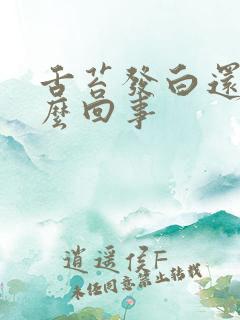 舌苔發白還
麼回事
逍遥侯F
未经同意禁止转载